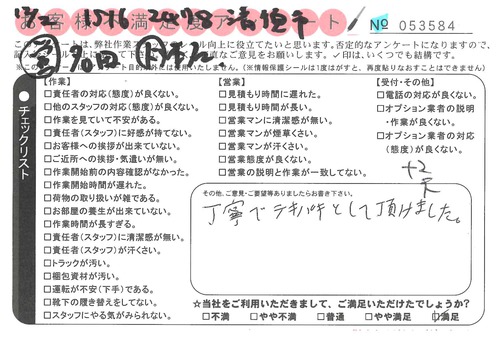 お客様満足度アンケート
№ 053584
このアンケートは、弊社作業スタッフのスキール向上に役立てたいと思います。否定的なアンケートになりますので、
直なご意見をお願いします。✓印は、いくつでも結構です。
(※情報保護シールは1度はがすと、再度貼りなおすことはできません)
チェックリスト
【作業】
□責任者の対応(態度)が良くない。
□他のスタッフの対応(態度)が良くない。
□作業を見ていて不安がある。
□責任者(スタッフ)に好感が持てない。
□お客様への挨拶が出来ていない。
□ご近所への挨拶・気遣いが無い。
□作業開始前の内容確認がなかった。
□作業開始時間が遅れた。
□荷物の取り扱いが雑である。
□お部屋の養生が出来ていない。
□作業時間が長すぎる。
□責任者(スタッフ)に清潔感が無い。
□責任者(スタッフ)が汗くさい。
□トラックが汚い。
□梱包資材が汚い。
□運転が不安(下手)である。
□靴下の履き替えをしてない。
□スタッフにやる気がみられない。
【営業】
□見積もり時間に遅れた。
□見積もり時間が長い。
□営業マンに清潔感が無い。
□営業マンが煙草くさい。
□営業マンが汗くさい。
□営業態度が良くない。
□営業の説明と作業が一致してない。
【受付・その他】
□電話の対応が良くない。
□オプション業者の説明
・作業が良くない。
□オプション業者の対応
(態度)が良くない。
その他、ご意見・ご要望等ありましたらお書き下さい。
丁寧でテキパキとして頂けました。
☆当社をご利用いただきまして、ご満足いただけたでしょうか?
□不満 □やや不満 □普通 □やや満足 □満足